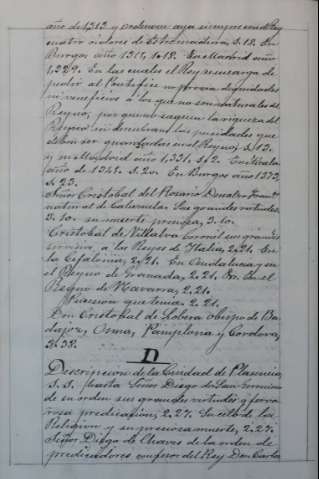 año de 1313 y ordenaron aya siempre con el Rey
cuatro señores de Estremadura, 3.18. En
Burgos año 1311, 1.18. En Madrid año
1,329. En las cuales el Rey se encarga de
pedir al Pontifice no provea dignidades
ni veneficios á los que no son naturales del
Reyno, por que no saquen la riqueza del
Reyno ni descubran las puridades que
deben ser guardadas en el Reyno, 3.13.
y en Madrid año 1,331. 3.2. En Alcala
año de 1348. 3.20. En Burgos año 1373,
3.23.
Señor Cristobal del Rosario Donato
natural de Cabezuela. Sus grandes virtudes,
3.10. su muerte preciosa, 3.10.
Cristobal de Villalva Coronel sus grandes
servicios a los Reyes de Italia, 2.21. En
la Cefalonia, 2.21. En Andalucia y en
el Reyno de Granada, 2.21. En el
Reyno de Navarra, 2.21.
que tenia 2.21.
Don Cristobal de Lobera obispo de Ba-
dajoz, Osma, Pamplona y Cordova,
3.38.
D
Descripcion de la Ciudad de Plasencia,
3.3. hasta Señor Diego de San Geronimo
de su orden sus grandes virtudes y fervo-
rosa predicacion, 2.27. Celo de la
Religion y su preciosa muerte, 2.27.
Señor Diego de Chaves de la orden de
predicadores confesor del Rey Don Carlos